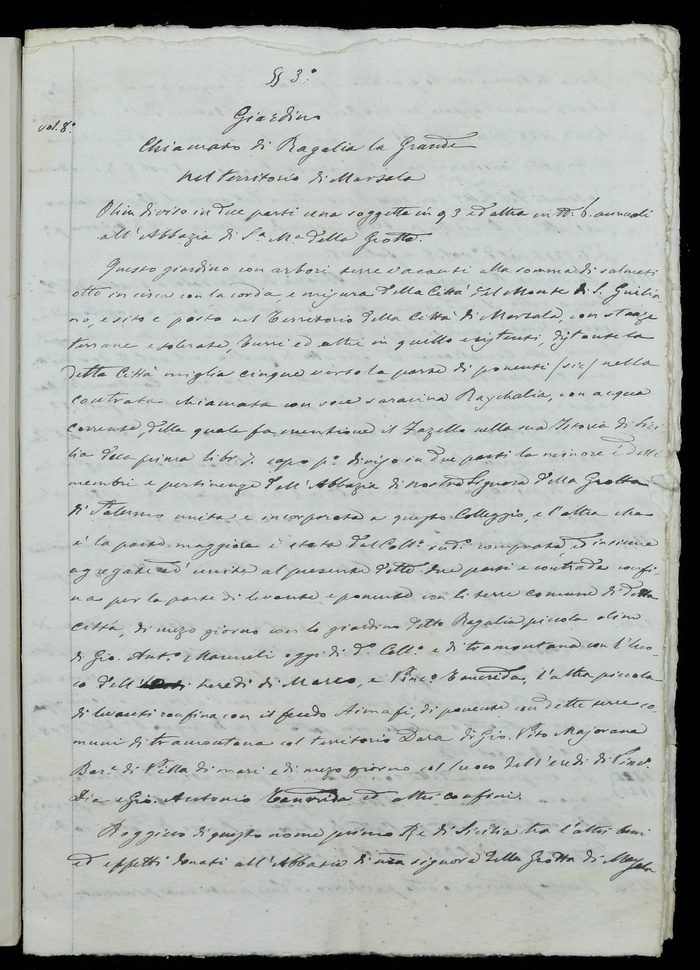 §§ 3.°
vol. 8.°
Giardino
Chiamato di Ragalia la Grande
nel territorio di Marsala
Olim diviso in due parti una soggetta in q 3 ed altra in annuali
all'Abbazia di S.ª M.ª della Grotta.
Questo giardino con arbori terre vacanti alla somma di salmati
otto in circa con la corda, e misura della Città del Monte di S. Giulia
no, e sito e posto nel Territorio della Città di Marsala, con stanze
terrane e solerate, Turri ed altri in quello esistenti, distante la
detta Città miglia cinque verso la parte di ponenti (sic) nella
contrata chiamata con voce saracina Raychalia, con acqua
corrente, della quale fa mentione il Fazello nella sua Istoria di Sici
lia deca prima libr. 7. capo p.° diviso in due parti la minore è delli
membri e pertinenze dell'Abbazia di nostra Signora della Grotta
di Palermo unita e incorporata a questo Colleggio, e l'altra che
è la parte maggiore è stata dal Coll.° sud.° comprata, ed insieme
aggregate ed unite al presente dette due parti e contrade confi
na per la parte di levante e ponente con li terre comune di detta
Città, di mezo giorno con lo giardino detto Ragalia piccola olim
di Gio. Ant.° oggi di d.° Coll.° e di tramontana con l'luo
co dell' heredi di Marco, e Vinc.° l'altra piccola
di levanti confina con il feudo di ponente con dette terre co
muni di tramontana col territorio Dara di Gio. Vito Majorana
Bar.e di Villa di mari e di mezo giorno col luoco dell'eredi di Vinc.°
e Gio. Antonio ed altri confini.
Roggiero di questo nome primo Re di Sicilia tra l'altri beni
ed effetti donati all'Abbazia di nra signora della Grotta di